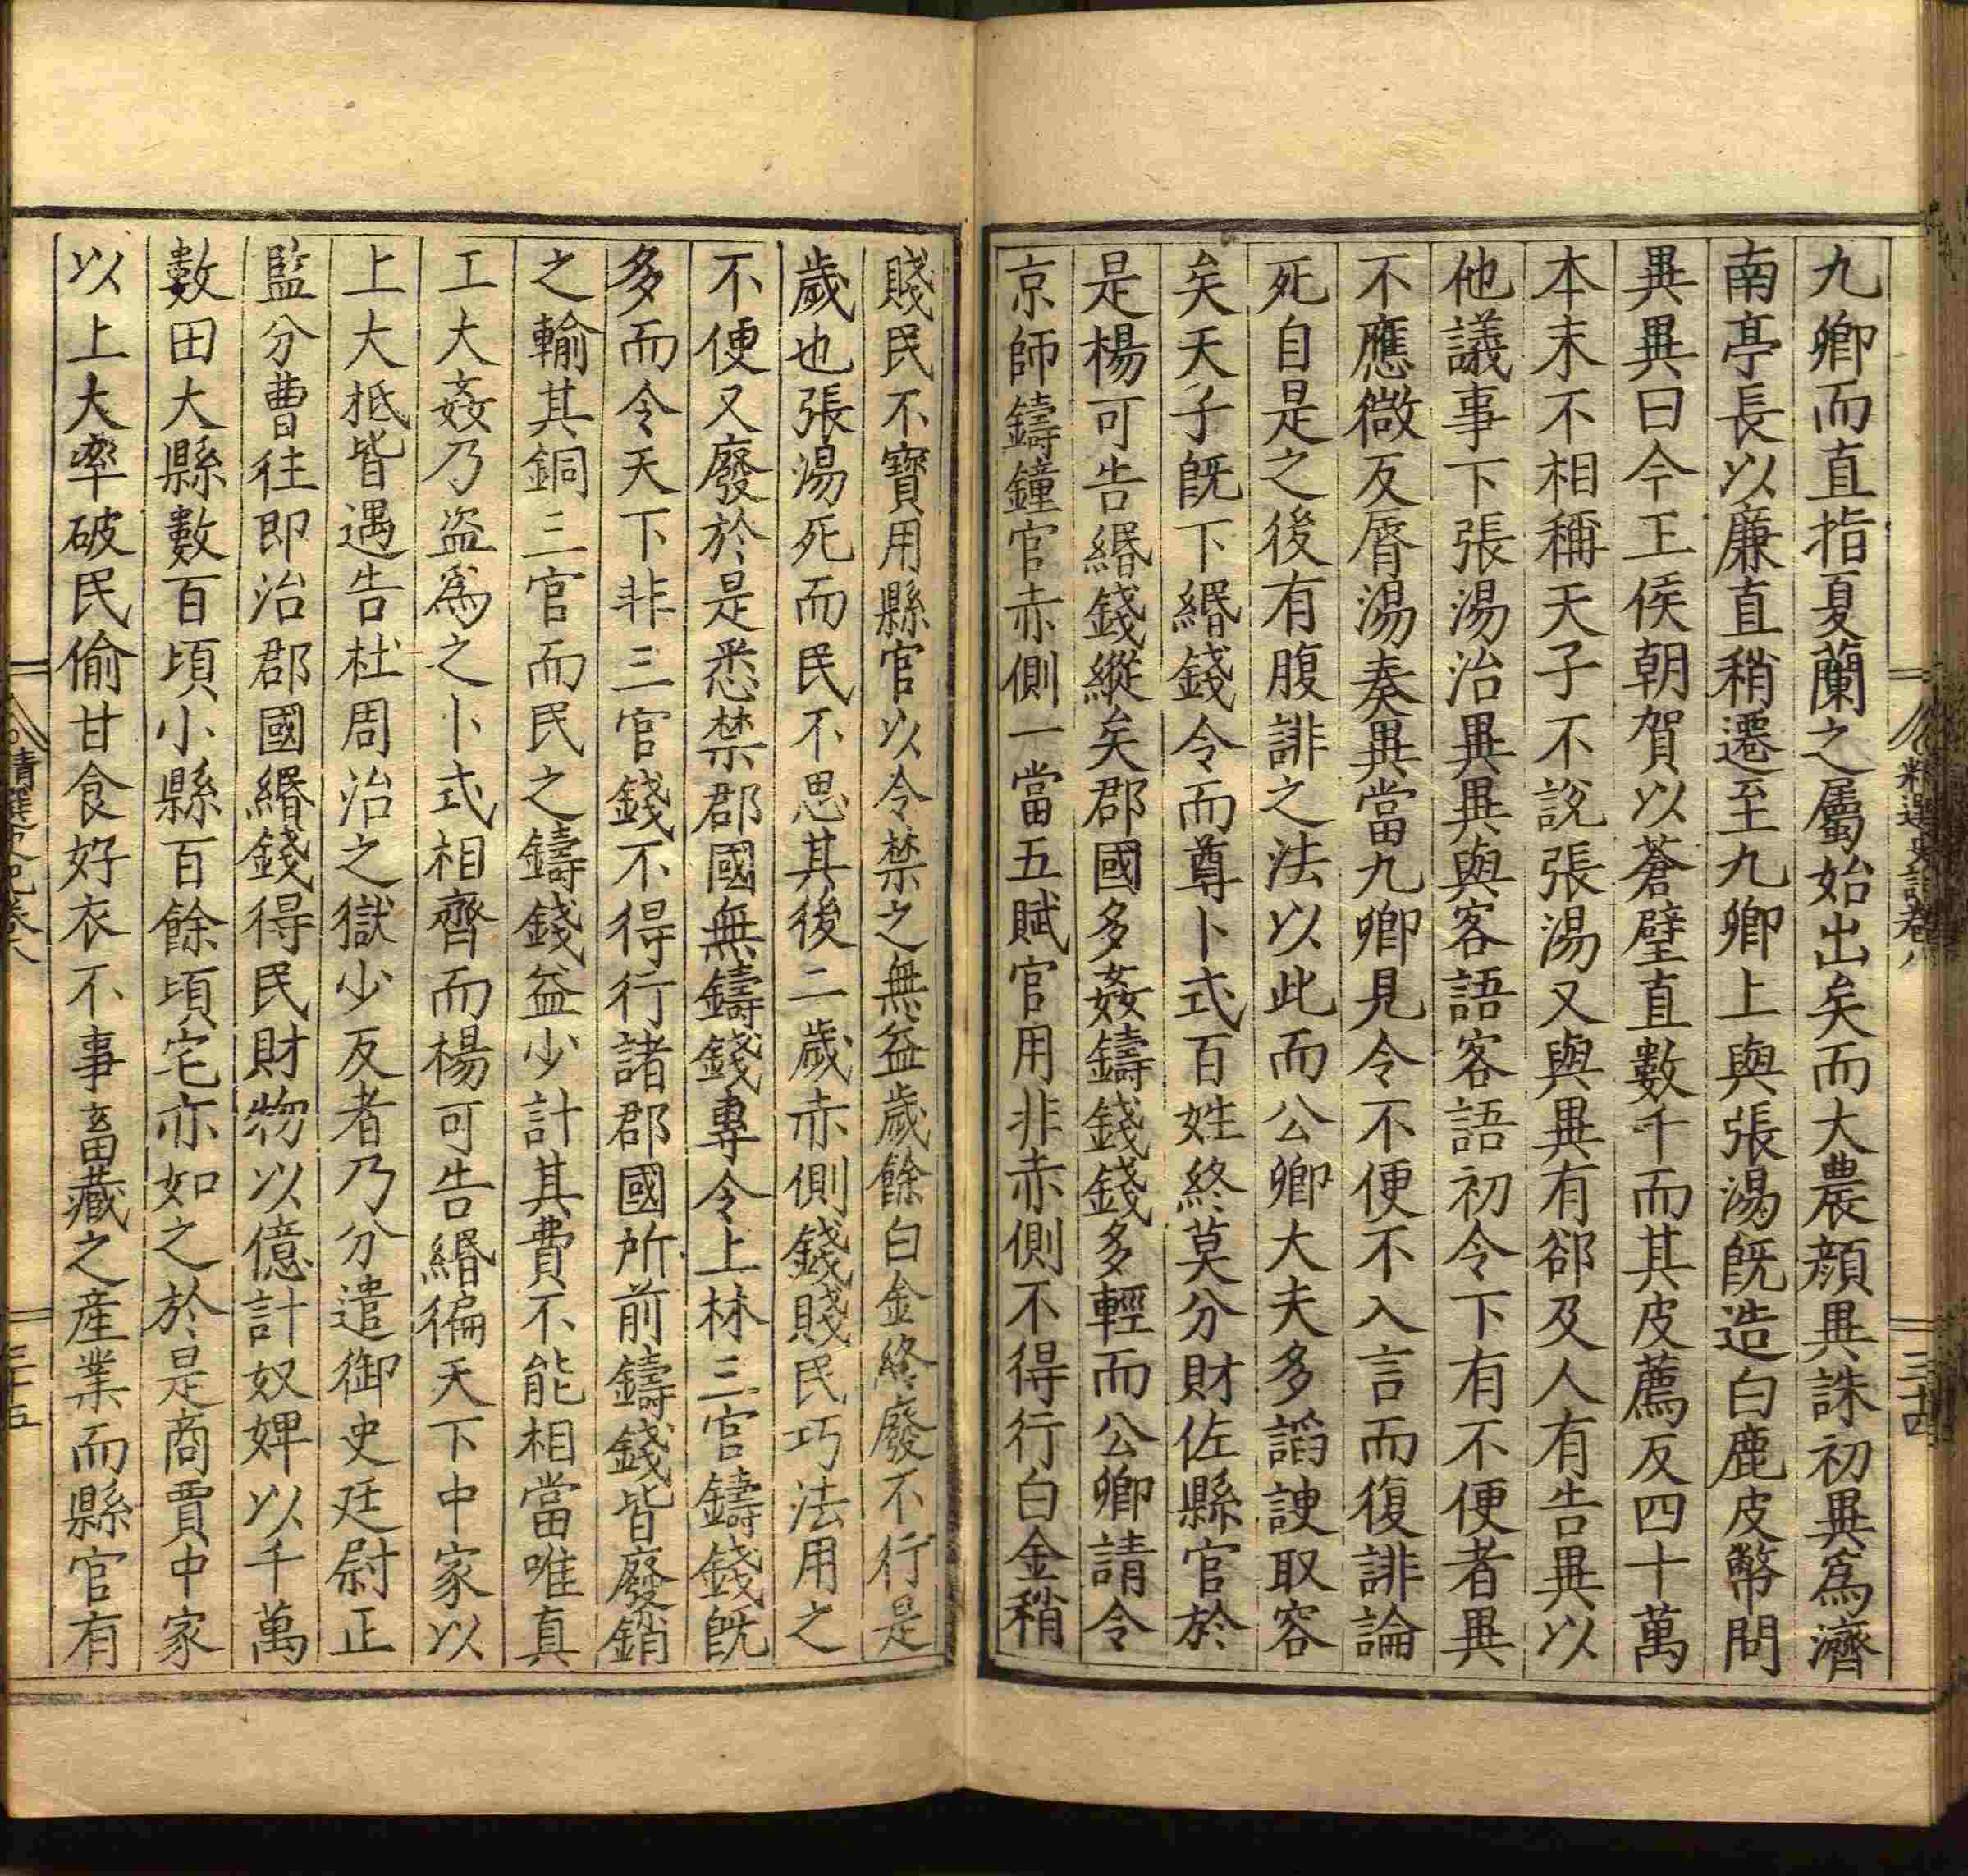 精選史記卷八
三十四
九卿而直指夏蘭之屬始出矣而大農顔異誅初異爲濟
南亭長以廉直稍遷至九卿上與張湯旣造白鹿皮幣問
異異曰今王侯朝賀以蒼璧直數千而其皮薦反四十萬
本末不相稱天子不說張湯又與異有郤及人有告異以
他議事下張湯治異異與客語客語初令下有不便者異
不應微反脣湯奏異當九卿見令不便不入言而復誹論
死自是之後有腹誹之法以此而公卿大夫多謟諛取容
矣天子旣下緡錢令而尊卜式百姓終莫分財佐縣官於
是楊可告緡錢縱矣郡國多姦鑄錢錢多輕而公卿請令
京師鑄鐘官赤側一當五賦官用非赤側不得行白金稍
賤民不寶用縣官以令禁之無益歲餘白金終廢不行是
歲也張湯死而民不思其後二歲赤側錢賤民巧法用之
不便又廢於是悉禁郡國無鑄錢專令上林三官鑄錢旣
多而令天下非三官錢不得行諸郡國所前鑄錢皆廢銷
之輸其銅三官而民之鑄錢益少計其費不能相當唯真
工大姦乃盜爲之卜式相齊而楊可告緡徧天下中家以
上大抵皆遇告杜周治之獄少反者乃分遣御史廷尉正
監分曹往即治郡國緡錢得民財物以億計奴婢以千萬
數田大縣數百頃小縣百餘頃宅亦如之於是商賈中家
以上大率破民偷甘食好衣不事畜藏之產業而縣官有
精選史記卷八
三十五